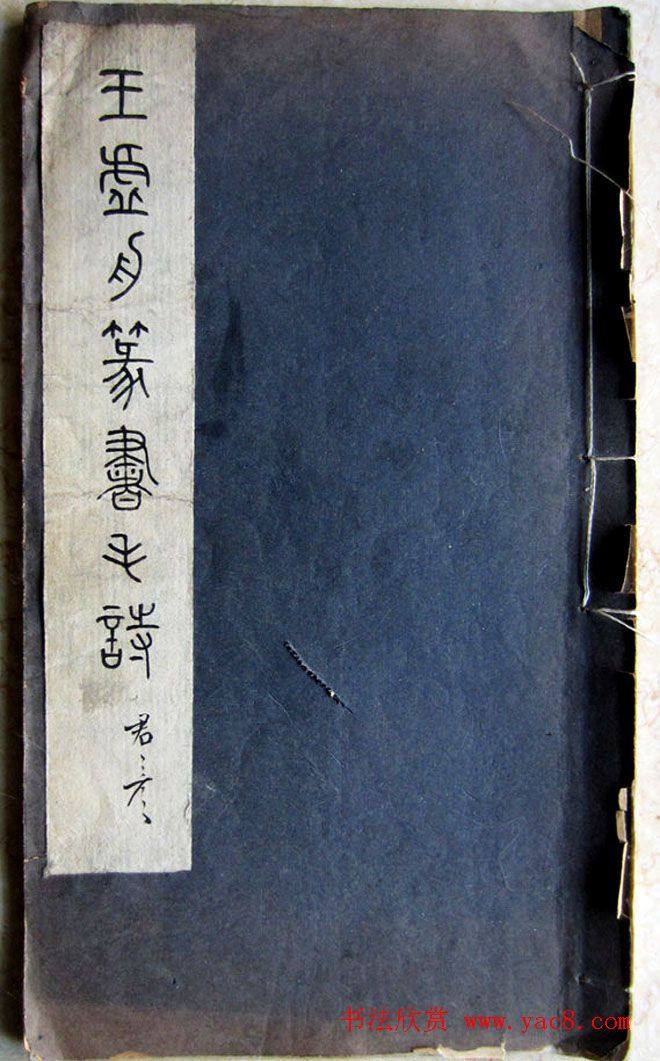 王虚舟篆書毛詩
君
书法欣赏 www.yac8.com